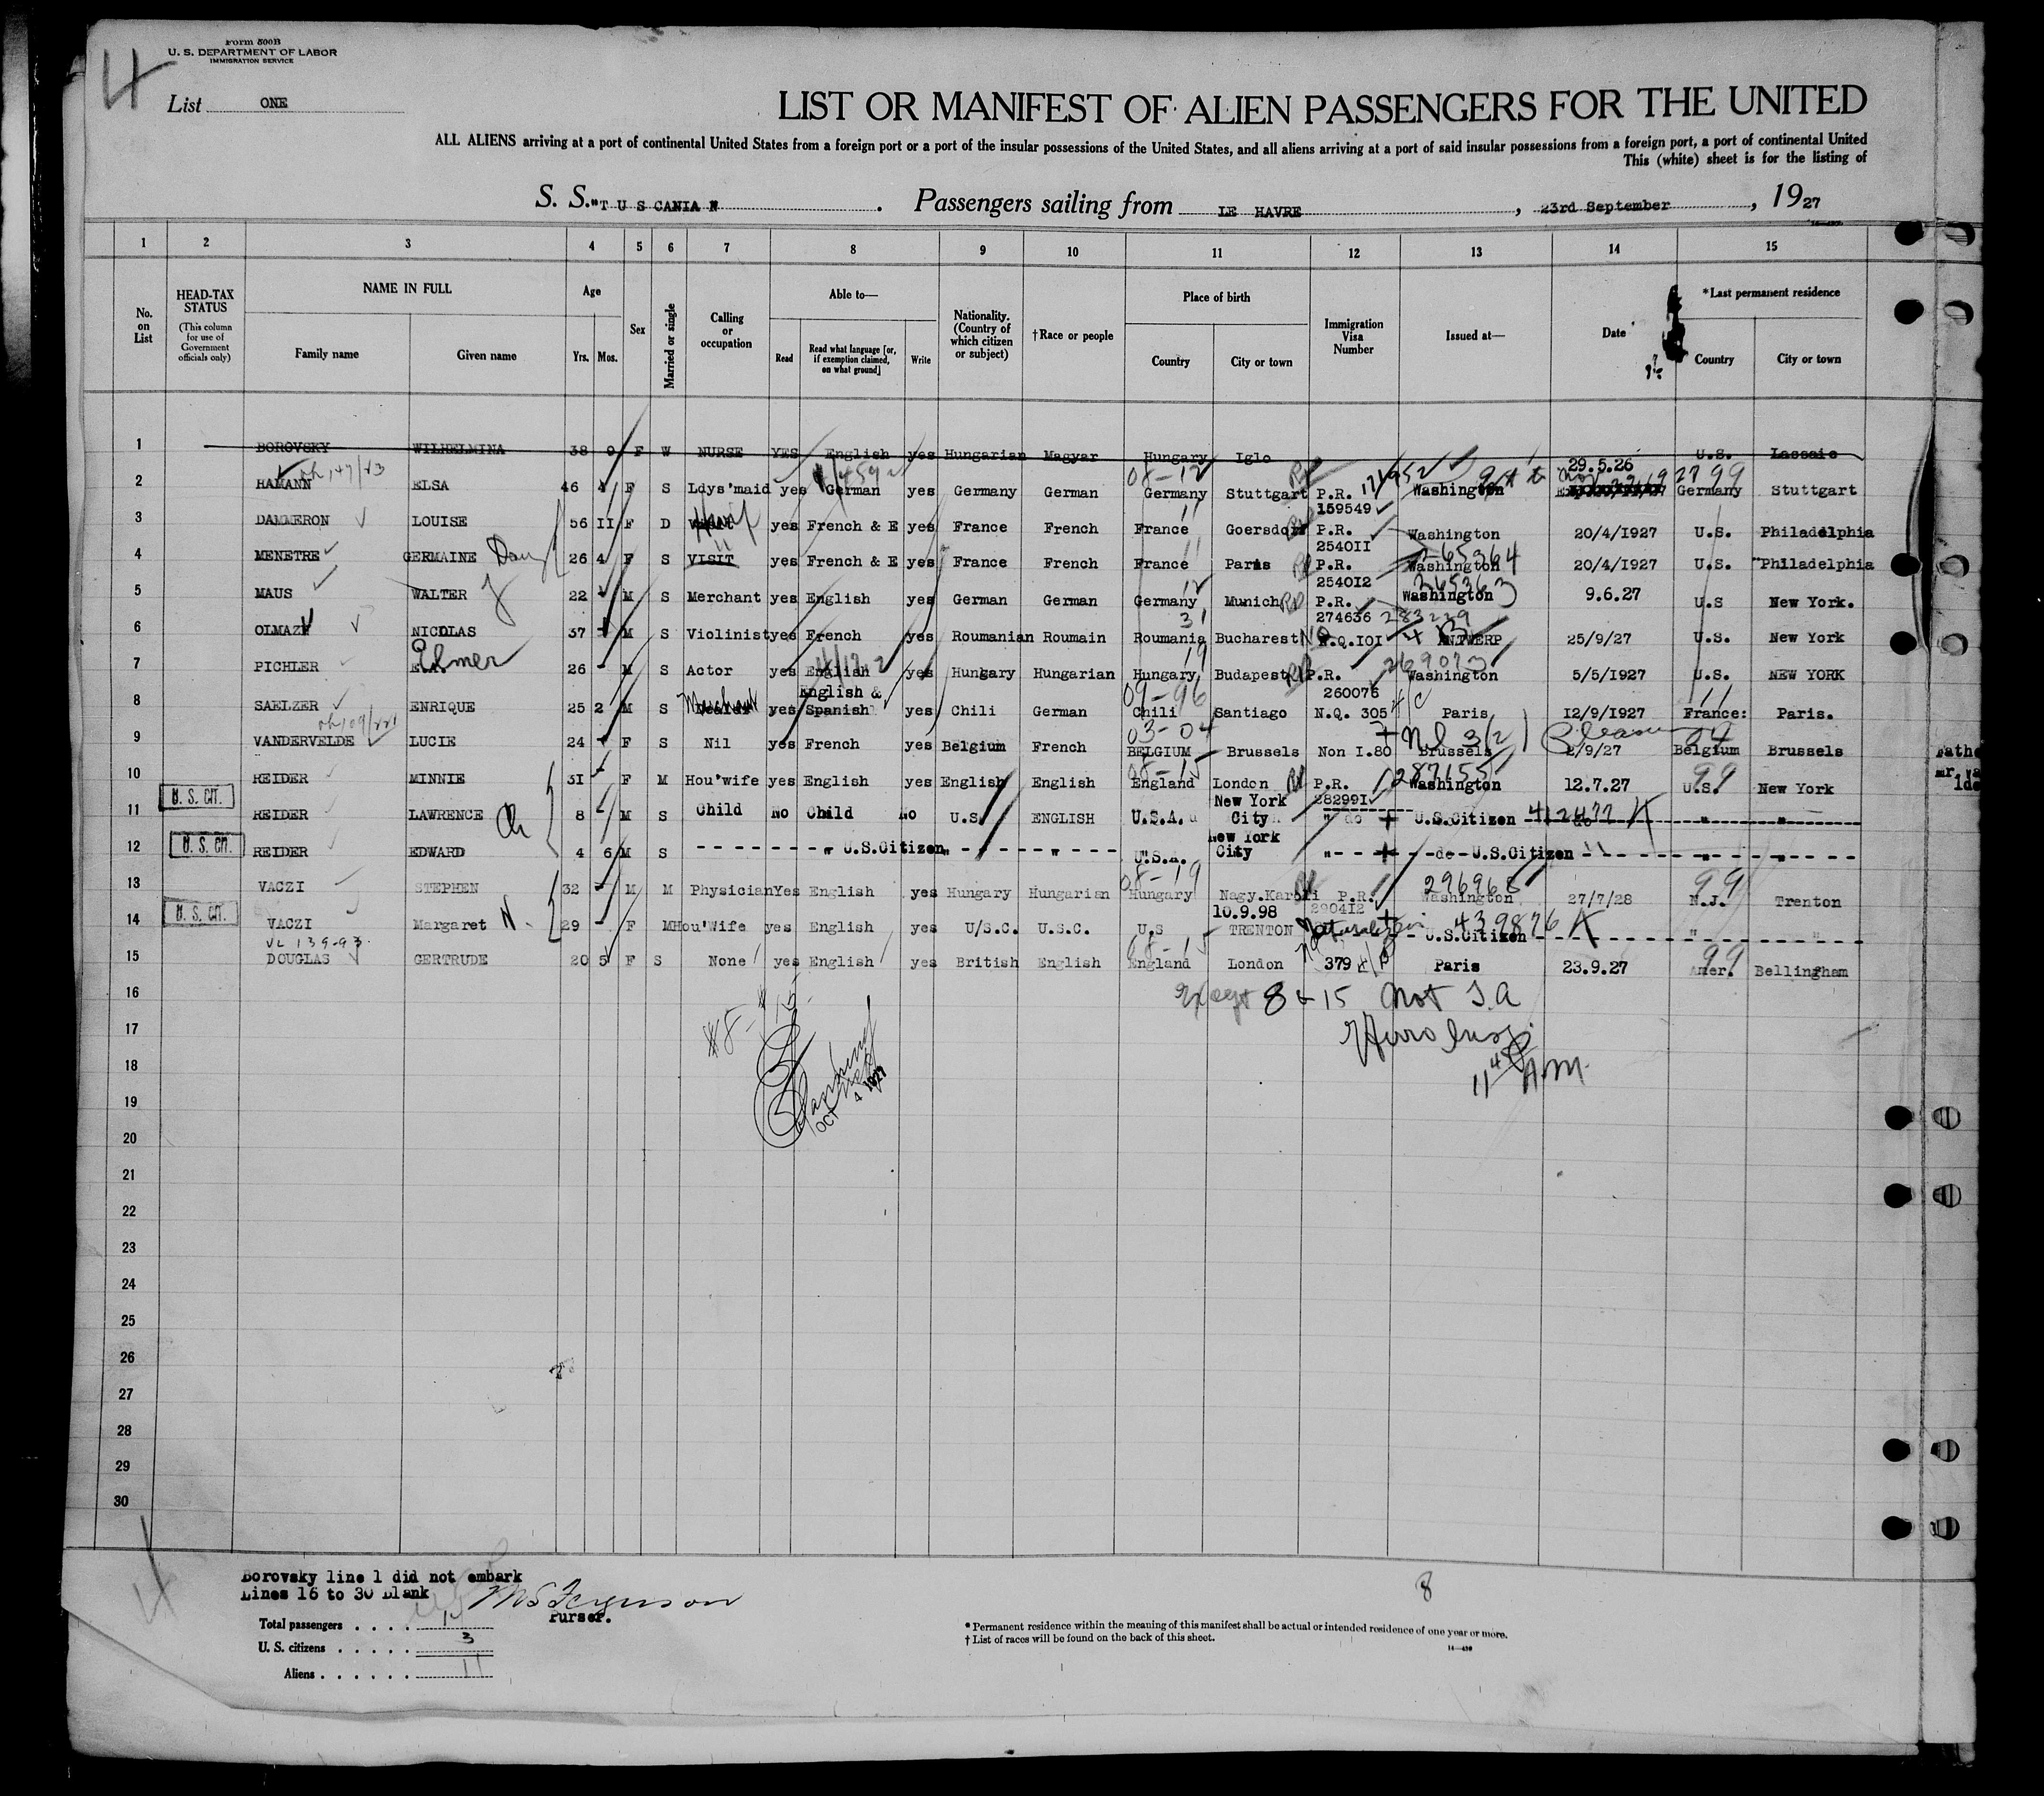 4
Form 500B
U. S. DEPARTMENT OF LABOR
IMMIGRATION SERVICE
List ONE
LIST OR MANIFEST OF ALIEN PASSENGERS FOR THE UNITED
ALL ALIENS arriving at a port of continental United States from a foreign port or a port of the insular possessions of the United States, and all aliens arriving at a port of said insular possessions from a foreign port, a port of continental United
This (white) sheet is for the listing of
S. S. "T U S CANIA". Passengers sailing from LE HAVRE, 23rd September, 1927
1 2 3 4 5 6 7 8 9 10 11 12 13 14 15
No. on List
HEAD-TAX STATUS (This column for use of Government officials only)
NAME IN FULL Family name Given name
Age Yrs. Mos.
Sex
Married or single
Calling or occupation
Able to— Read Read what language [or, if exemption claimed, on what ground] Write
Nationality. (Country of which citizen or subject)
†Race or people
Place of birth Country City or town
Immigration Visa Number
Issued at—
Date
*Last permanent residence Country City or town
1 BOROVSKY WILHELMINA 38 9 F W NURSE YES English yes Hungarian Magyar Hungary Iglo U.S. Lassaic
2 HAMANN ELSA 46 F S Ldys'maid yes German yes Germany German 08-12 Germany Stuttgart P.R. 159549 Washington 29.5.26 Germany Stuttgart
3 DAMMERON LOUISE 56 II F D yes French & E yes France French France Goersdorf P.R. 2540II Washington 20/4/I927 U.S. Philadelphia
4 MENETRE GERMAINE 26 4 F S VISIT yes French & E yes France French France Paris P.R. 2540I2 Washington 265364 20/4/I927 U.S. "Philadelphia
5 MAUS WALTER 22 M S Merchant yes English yes German German Germany Munich P.R. 274636 Washington 265363 9.6.27 U.S New York.
6 OLMAZU NICOLAS 37 - M S Violinist yes French yes Roumanian Roumain Roumania Bucharest N.Q.IOI ANTWERP 283229 25/9/27 U.S. New York
7 PICHLER Elmer 26 - M S Actor yes English yes Hungary Hungarian Hungary Budapest P.R. 260076 Washington 5/5/I927 U.S. NEW YORK
8 SAELZER ENRIQUE 25 2 M S Merchant yes English & Spanish yes Chili German 09-96 Chili Santiago N.Q. 305 Paris I2/9/I927 France: Paris.
9 VANDERVELDE LUCIE 24 F S Nil yes French yes Belgium French 03-04 BELGIUM Brussels Non I.80 Brussels Pleasure /9/27 Belgium Brussels
10 REIDER MINNIE 3I - F M Hou'wife yes English yes English English 08-15 England London P.R. 28299I Washington 287155 12.7.27 99 U.S. New York
U. S. CIT.
11 REIDER LAWRENCE 8 M S Child No Child No U.S. ENGLISH U.S.A. New York City " do U.S.Citizen 412477 " "
U. S. CIT.
12 REIDER EDWARD 4 6 M S " U.S.Citizen " " U.S.A. New York City " do U.S.Citizen " "
13 VACZI STEPHEN 32 - M M Physician Yes English yes Hungary Hungarian 08-19 Hungary Nagy.Karoli P.R. 2904I2 Washington 296968 27/7/28 99 N.J. Trenton
U. S. CIT.
14 VACZI Margaret N. 29 - F M Hou'Wife yes English yes U/S.C. U.S.C. U.S 10.9.98 TRENTON U.S.Citizen 439876 " "
VL 139-93.
15 DOUGLAS GERTRUDE 20 5 F S None yes English yes British English 08-15 England London 379 Paris 23.9.27 99 Amer. Bellingham
16
Except 8 & 15 Not S.A
17
18
11 45 A.M.
OCT 4 1927
19
20
21
22
23
24
25
26
27
28
29
30
Borovsky line 1 did not embark
Lines 16 to 30 blank
M S Ferguson
Purser.
Total passengers . . . .
U. S. citizens . . . . . 3
Aliens . . . . . . 11
8
* Permanent residence within the meaning of this manifest shall be actual or intended residence of one year or more.
† List of races will be found on the back of this sheet.